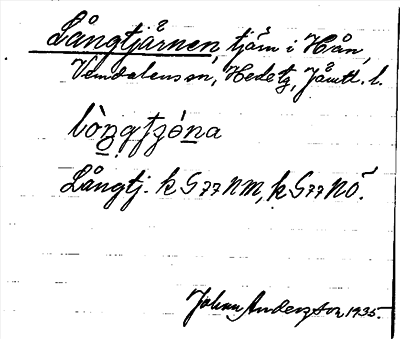 Långtjärnen, tjärn i Hån,
Vemdalens sn, Hede tg, Jämtl. l.
lòngtjǝ́na
Långtj. k G 77 NM, k G 77 NÖ.
Johan Anderzson 1935.